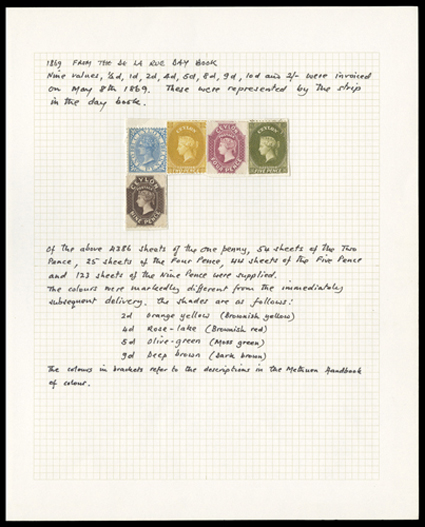 1869 FROM THE DE LA RUE DAY BOOK
Nine values, ½d, 1d, 2d, 4d, 5d, 8d, 9d, 10d and 2/- were invoiced
on May 8th 1869. These were represented by the strip
in the day book.
CEYLON CEYLON CEYLON
TWO PENCE FOUR PENCE FIVE PENCE
CEYLON
POSTAGE
NINE PENCE
Of the above 4386 sheets of the one penny, 54 sheets of the Two
Pence, 25 sheets of the Four Pence, 44 sheets of the Five Pence
and 123 sheets of the Nine Pence were supplied.
The colours were markedly different from the immediately
subsequent delivery. The shades are as follows:
2d Orange yellow (Brownish yellow)
4d Rose-lake (Brownish red)
5d Olive-green (Moss green)
9d Deep brown (Dark brown)
The colours in brackets refer to the descriptions in the Methuen Handbook
of colour.